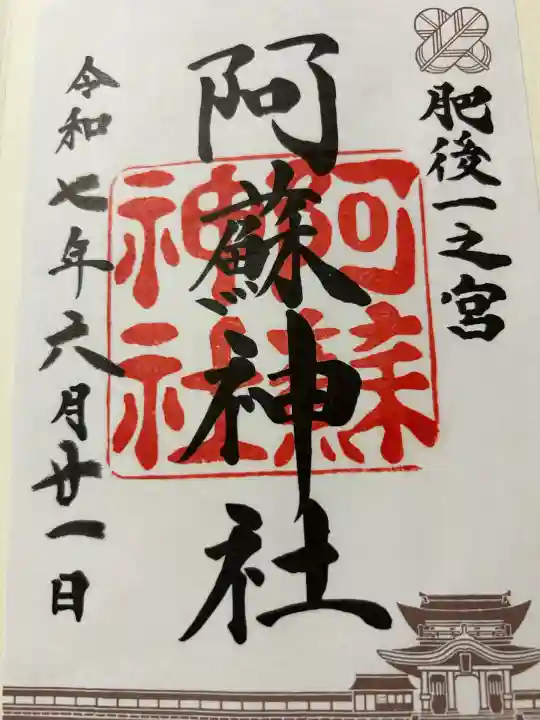 肥後一之宮
阿蘇神社
阿蘇
神社
令和七年六月廿一日